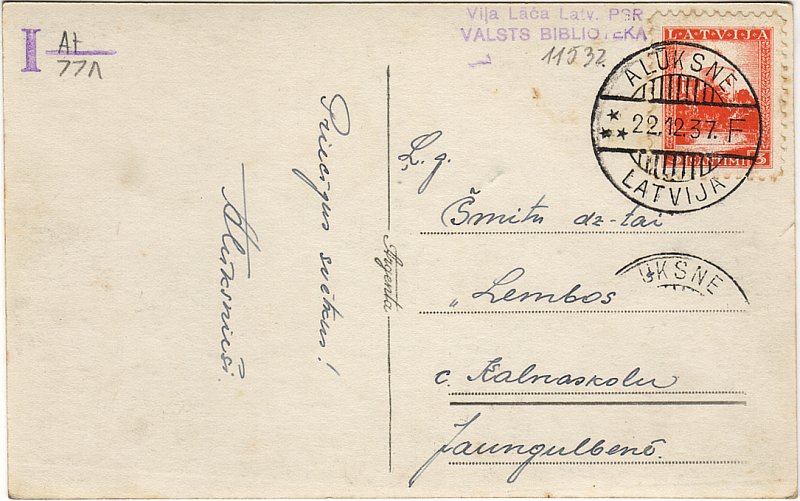 I At
77A
Vija Lāča Latv. PSR
VALSTS BIBLIOTEKA
11532
LATVIJA
ALŪKSNE
22.12.37. F
LATVIJA
Priecīgus svētkus!
Alūksnieši.
Argenta
Ļ. g.
Šmitu dz-tai
„Lembos
c. Kalnaskolu
Jaungulbenē.
UKSNE